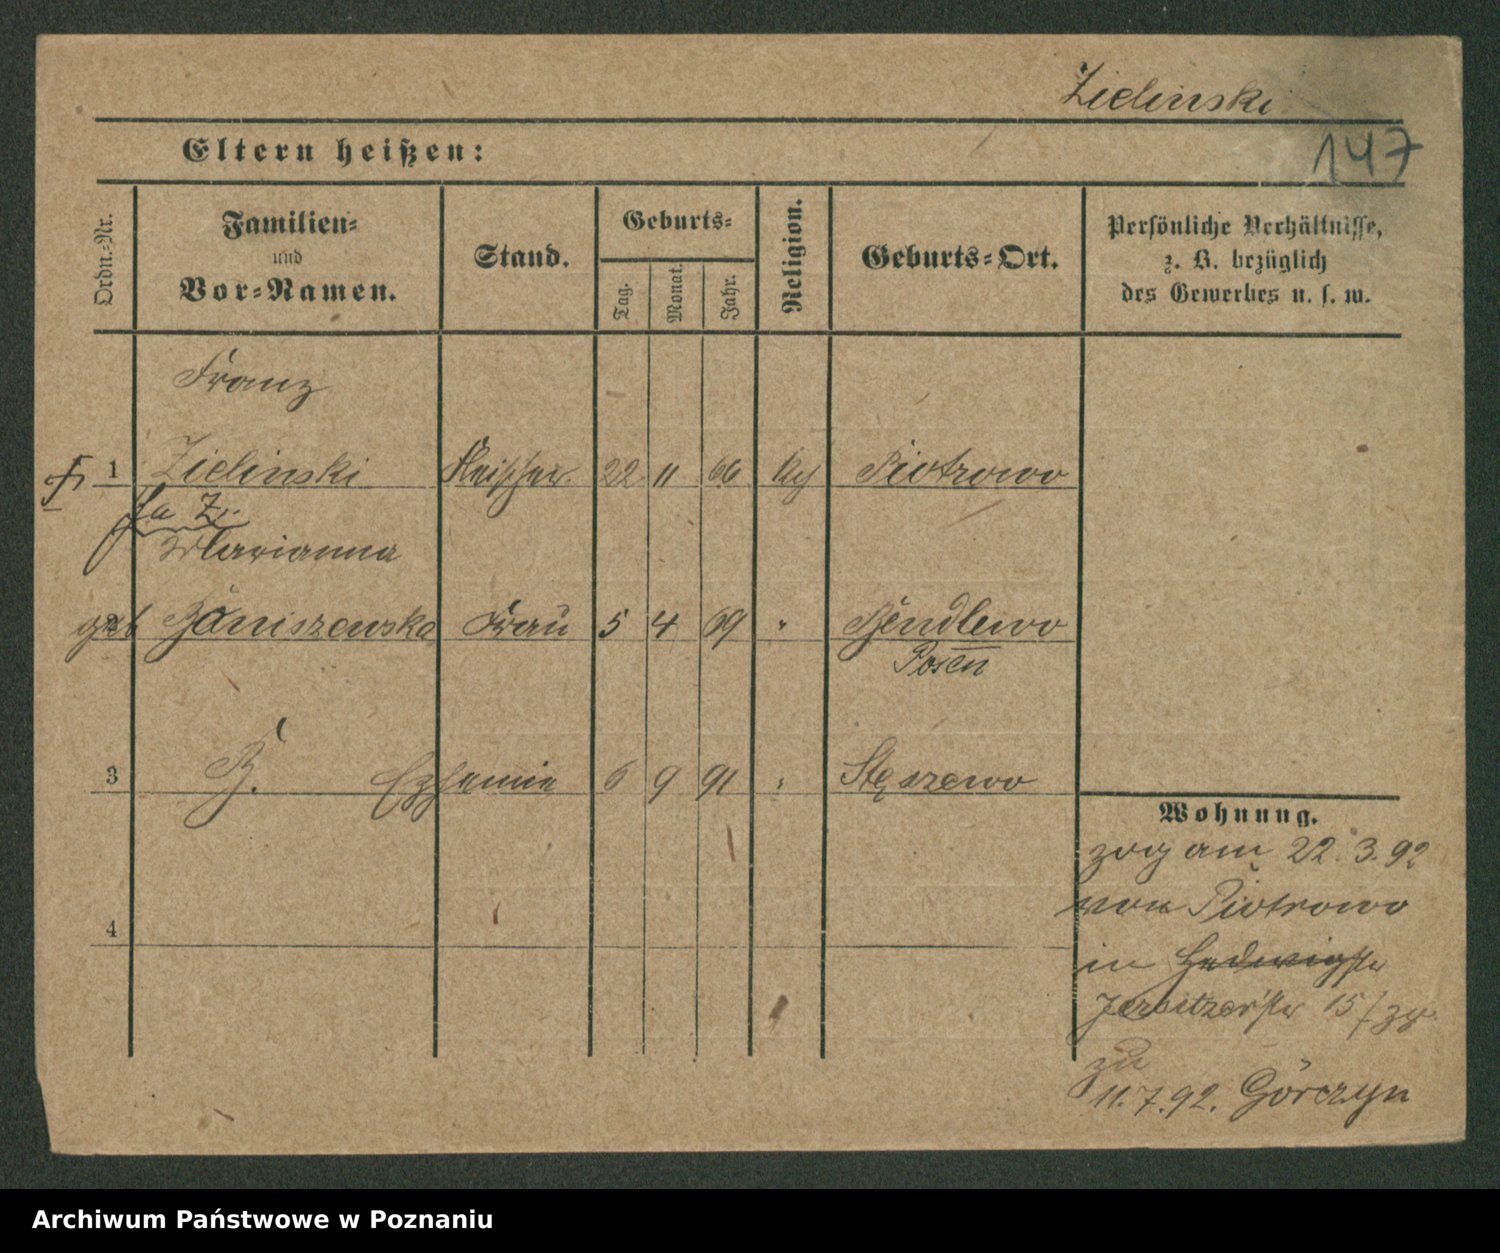 Zielinski
147
Eltern heißen:
Ordn.-Nr.
Familien-
und
Vor-Namen.
Stand.
Geburts-
Tag.
Monat.
Jahr.
Religion.
Geburts-Ort.
Persönliche Verhältnisse,
z. B. bezüglich
des Gewerbes u. s. w.
Franz
1 Zielinski Fleischer 22 11 66 Piotrowo
Marianna
geb Baniszewska Frau 5 4 69 " Bendlewo
Posen
3 6 9 91 " Stęszewo
4
Wohnung.
zog am 22. 3. 92
von Piotrowo
in Hedwigstr
Jersitzerstr 15/
zu
11. 7. 92. Górczyn
Archiwum Państwowe w Poznaniu